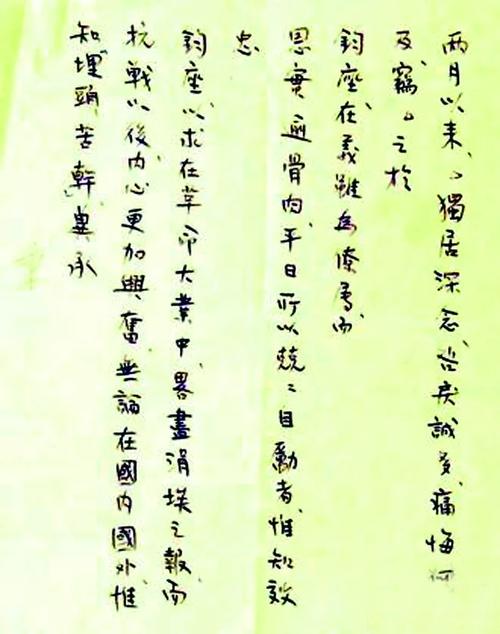 兩月以來、厶獨居深念、咎戾誠多、痛悔何
及、竊厶之於
鈞座、在義雖為僚屬、而
恩實逾骨肉、平日所以兢〻自勵者、惟知效
忠
鈞座、以求在革命大業中、畧盡涓埃之報、而
抗戰以後、內心更加興奮、無論在國內國外、惟
知埋頭苦幹、冀承